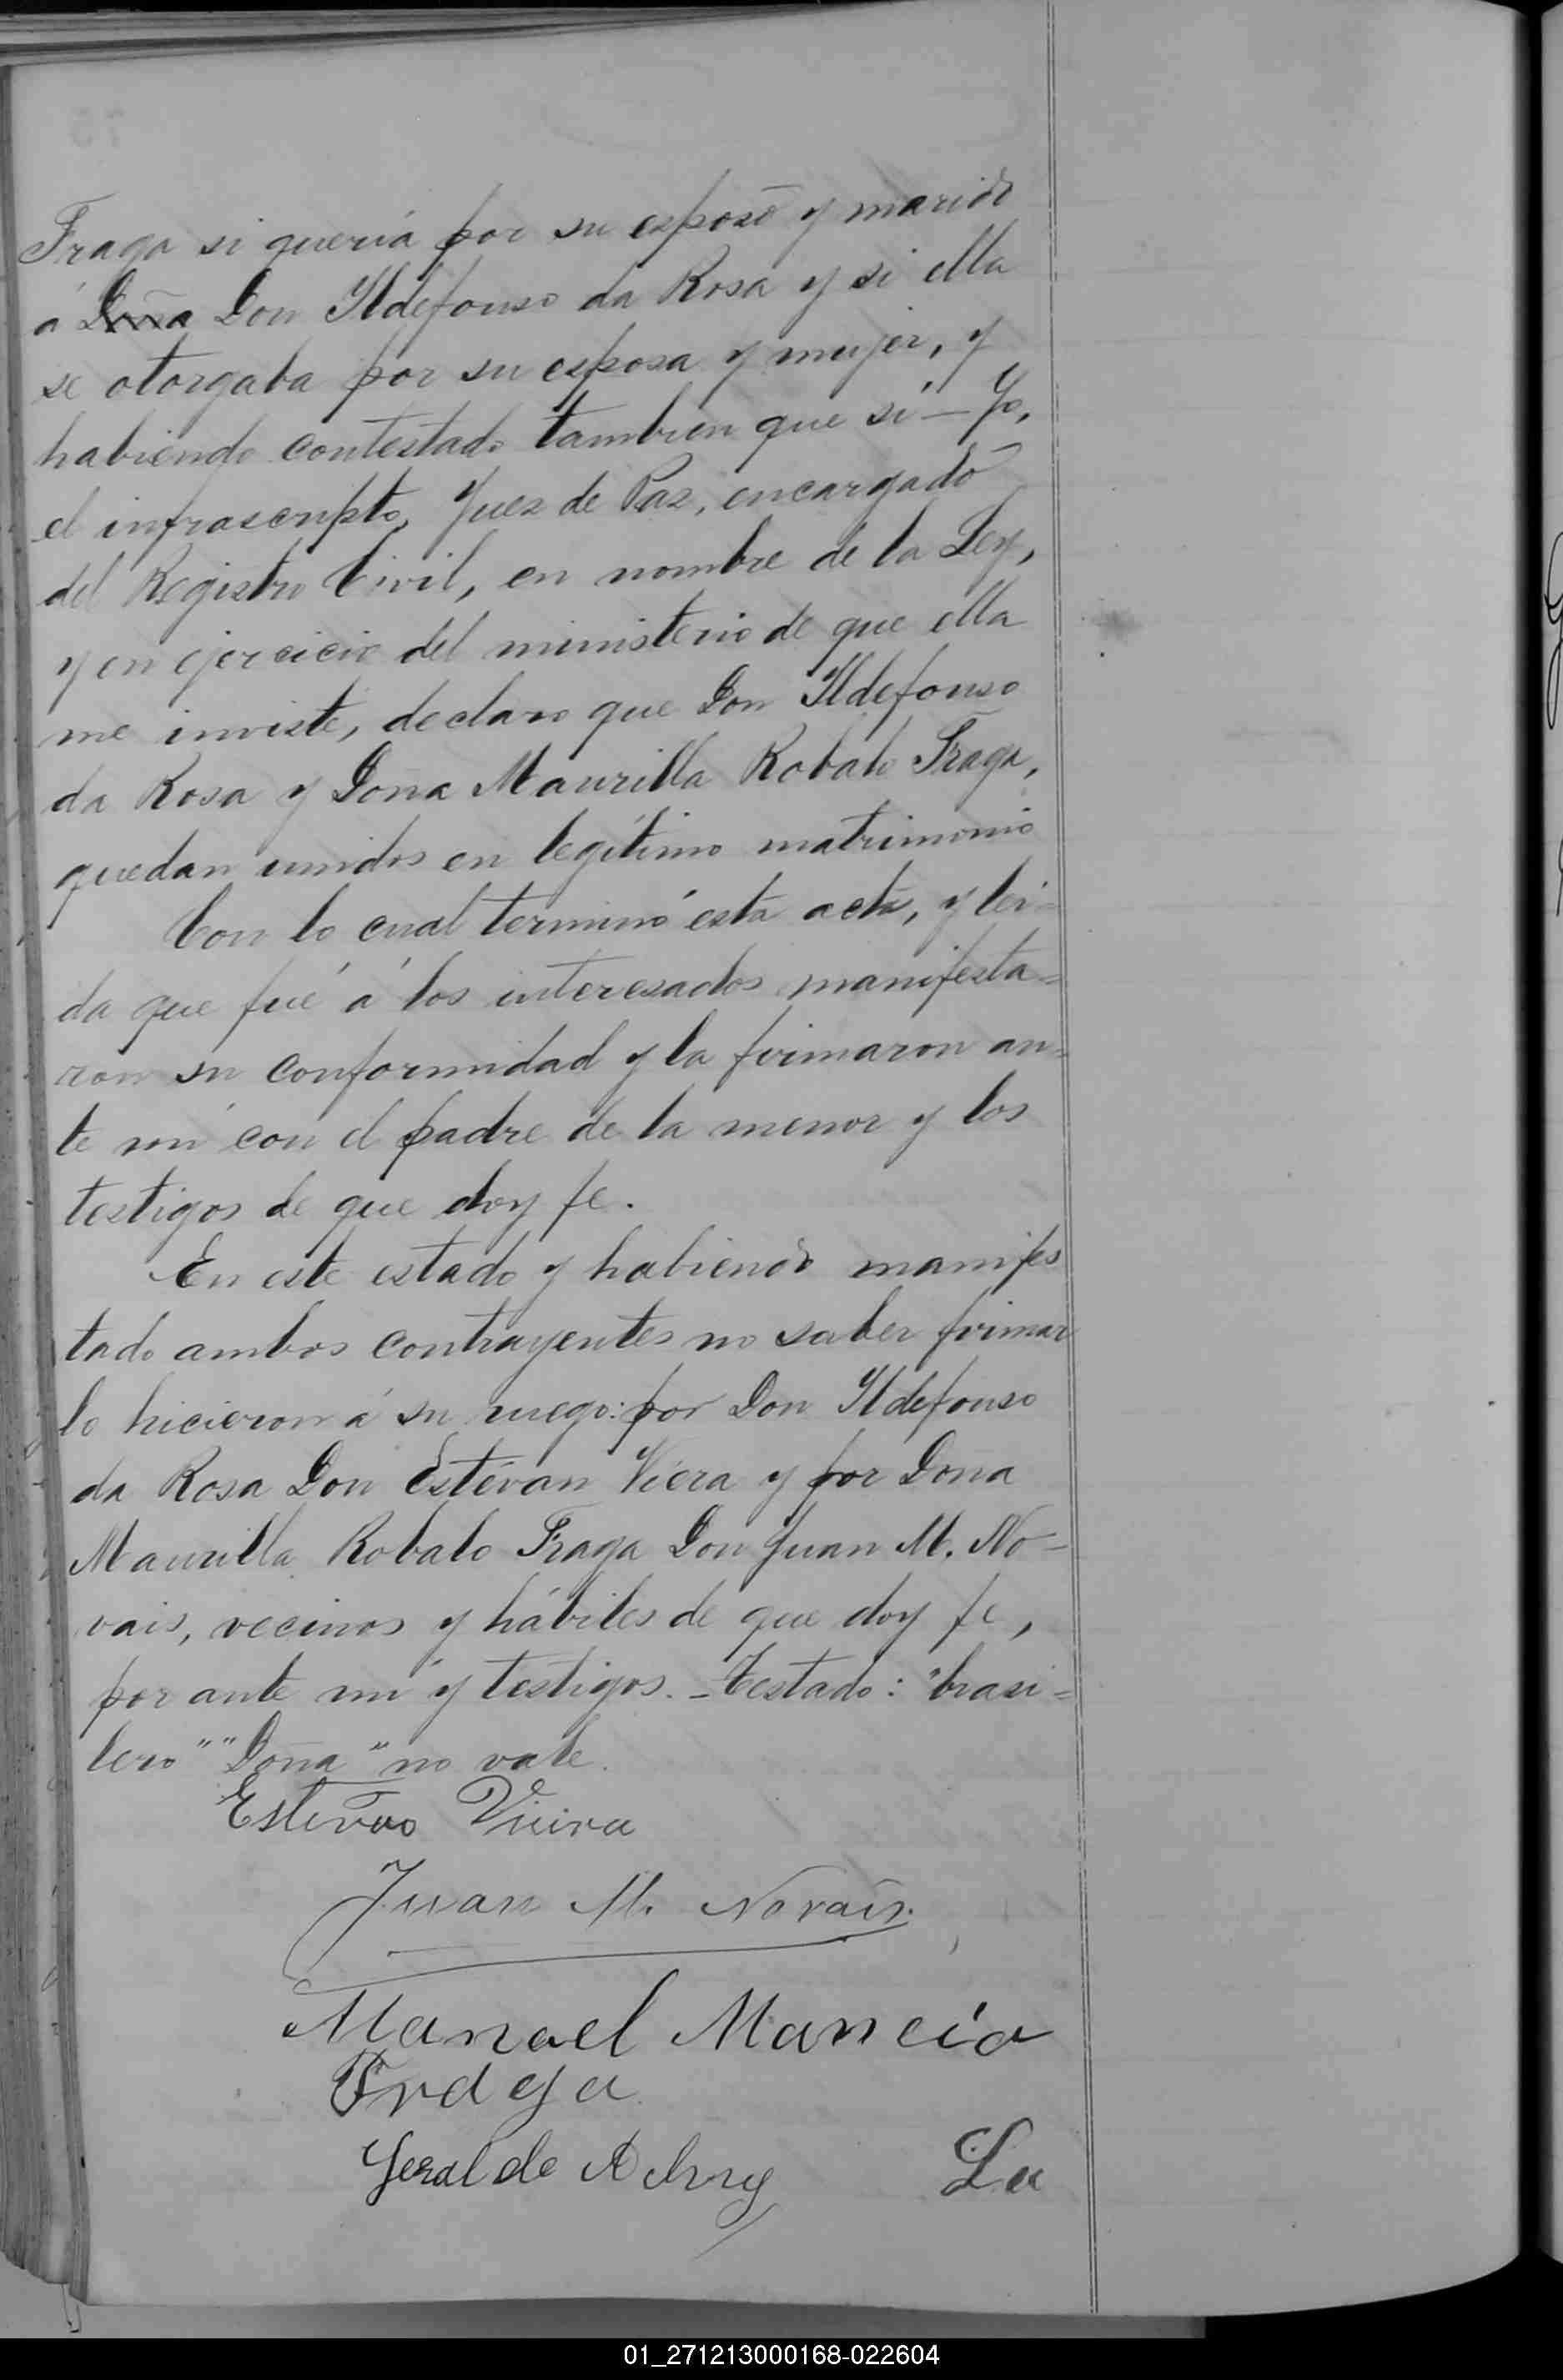 Fraga si quería por su esposo y marido
á Doña Don Yldefonso da Rosa y si ella
se otorgaba por su esposa y mujer, y
habiendo contestado tambien que sí — Yo,
el infrascripto, Juez de Paz, encargado
del Registro Civil, en nombre de la Ley,
y en ejercicio del ministerio de que ella
me inviste, declaro que Don Yldefonso
da Rosa y Doña Maurilla Robalo Fraga,
quedan unidos en legítimo matrimonio
Con lo cual terminó esta acta, y lei-
da que fué á los interesados manifesta=
ron su conformidad y la firmaron an=
te mí con el padre de la menor y los
testigos de que doy fe.
En este estado y habiendo manifes
tado ambos contrayentes no saber firmar
lo hicieron á su ruego: por Don Yldefonso
da Rosa Don Estévan Viera y por Doña
Maurilla Robalo Fraga Don Juan M. No-
vais, vecinos y hábiles de que doy fe,
por ante mí y testigos. - Testado: "brasi=
lero" "Doña" no vale.
Estevao Vieira
Juan M. Novais.
Manoel Mancio
Fraga
La
01_271213000168-022604